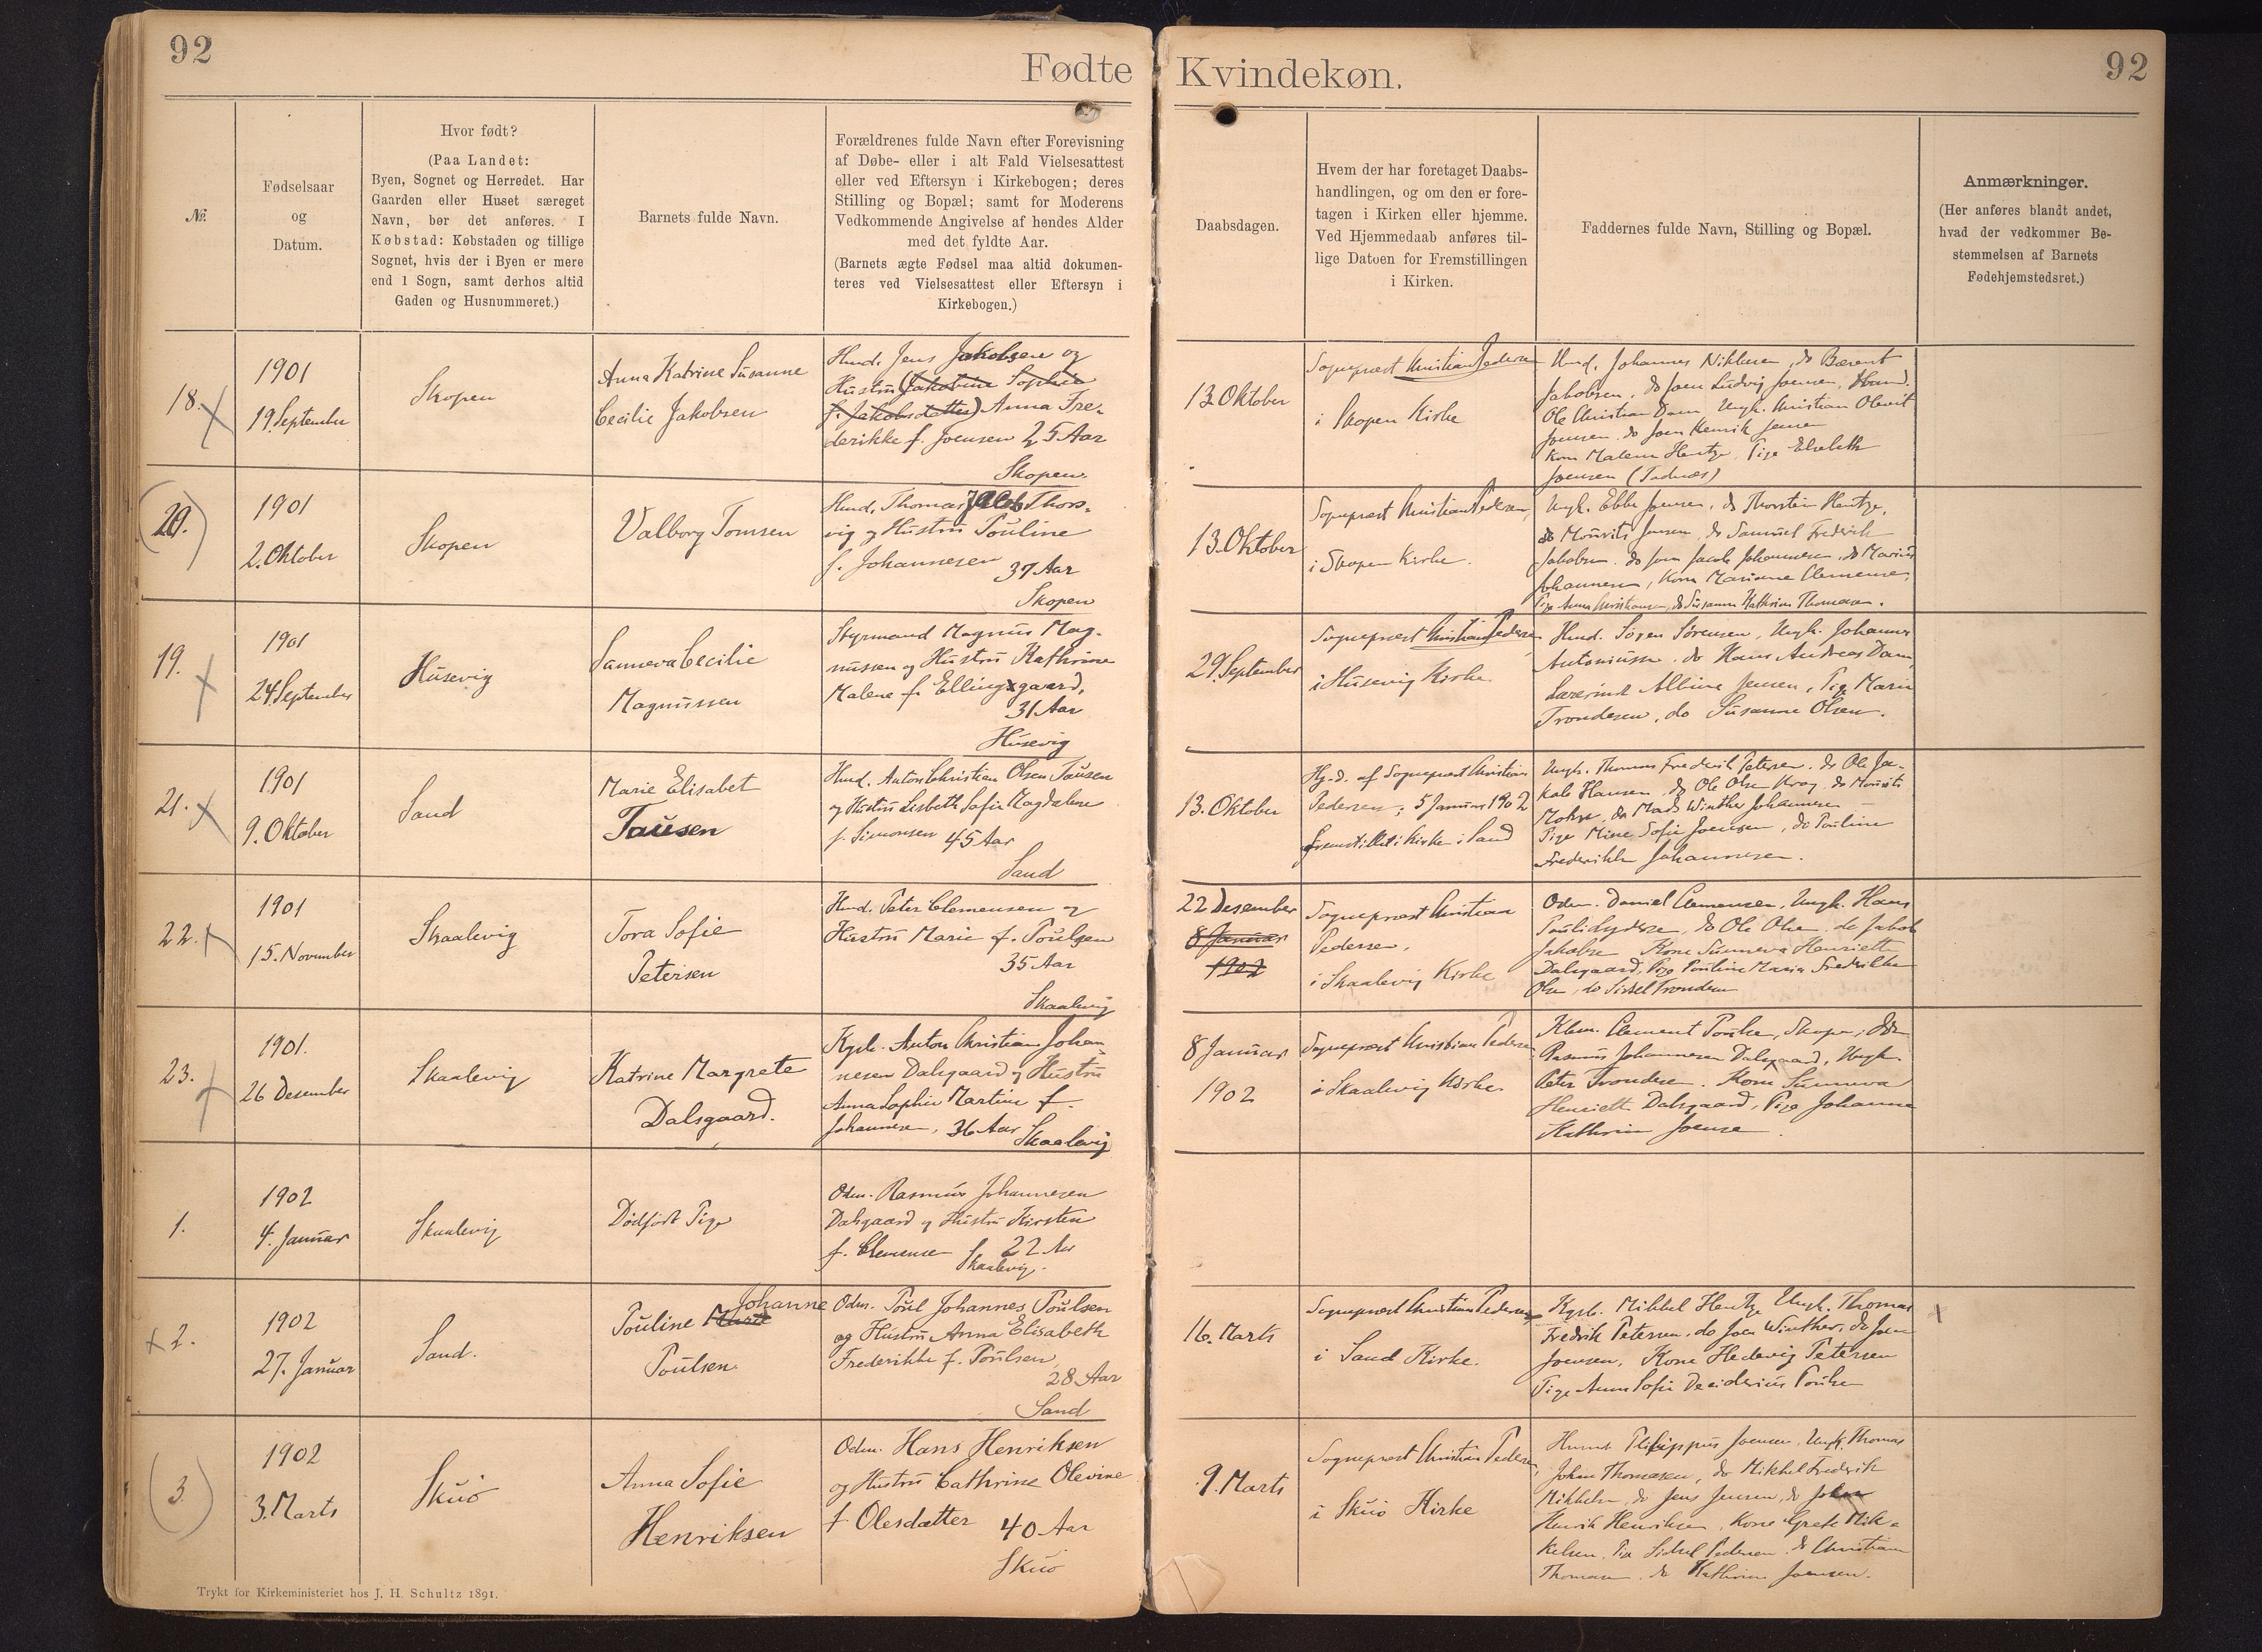 92
Fødte
Kvindekøn.
92
№
Fødselsaar
og
Datum.
Hvor født?
(Paa Landet:
Byen, Sognet og Herredet. Har
Gaarden eller Huset særeget
Navn, bør det anføres. I
Købstad: Købstaden og tillige
Sognet, hvis der i Byen er mere
end 1 Sogn, samt derhos altid
Gaden og Husnummeret.)
Barnets fulde Navn.
Forældrenes fulde Navn efter Forevisning
af Døbe- eller i alt Fald Vielsesattest
eller ved Eftersyn i Kirkebogen; deres
Stilling og Bopæl; samt for Moderens
Vedkommende Angivelse af hendes Alder
med det fyldte Aar.
(Barnets ægte Fødsel maa altid dokumen-
teres ved Vielsesattest eller Eftersyn i
Kirkebogen.)
Daabsdagen.
Hvem der har foretaget Daabs-
handlingen, og om den er fore-
tagen i Kirken eller hjemme.
Ved Hjemmedaab anføres til-
lige Datoen for Fremstillingen
i Kirken.
Faddernes fulde Navn, Stilling og Bopæl.
Anmærkninger.
(Her anføres blandt andet,
hvad der vedkommer Be-
stemmelsen af Barnets
Fødehjemstedsret.)
18.
1901
19. September
Skopen
Anna Katrine Susanne
Cecilie Jakobsen
Hmd. Jens Jakobsen og
Hustru (Jakobine Sophie
f. Jakobsdatter) Anna Fre-
derikke f. Joensen 25 Aar
Skopen
13. Oktober
Sognepræst Christian Pedersen
i Skopen Kirke
Hmd. Johannes Niklasen, do Bærent
Jakobsen, do Joen Ludvig Joensen, Hmd.
Ole Christian Dam, Ungk. Christian Olevit
Joensen, do Joen Henrik Jensen
Kone Malene Hentze, Pige Elsebeth
Joensen
20.
1901
2. Oktober
Skopen
Valborg Tomsen
Hmd. Thomas Jakob Thors-
vig og Hustru Pouline
f. Johannesen
37 Aar
Skopen
13. Oktober
Sognepræst Christian Pedersen,
i Skopen Kirke.
Ungk. Ebbe Jensen, do Thorstein Hentze,
do Mourits Jensen, do Samuel Frederik
Jakobsen. do Joen Jacob Johannesen, do Marius
Johannesen, Kone Mariane Clemensen,
Pige Anna Christiansen, do Susanne Kathrine Thomasen.
19.
1901
24. September
Husevig
Sanneva Cecilie
Magnussen
Styrmand Magnus Mag-
nussen og Hustru Kathrine
Malene f. Ellingsgaard,
31 Aar
Husevig
29. September
Sognepræst Christian Pedersen
i Husevig Kirke
Hmd. Søren Sørensen, Ungk. Johannes
Antoniussen. do Hans Andreas Dam,
Lærerinde Alline Jensen, Pige Marie
Trondesen, do Susanne Olsen.
21.
1901
9. Oktober
Sand
Marie Elisabet
Tausen
Hmd. Anton Christian Olsen Tausen
og Hustru Lisbeth Sofie Magdalene
f. Simonsen 45 Aar
Sand
13. Oktober
Hj.-d. af Sognepræst Christian
Pedersen; 5 Januar 1902
fremstillet i Kirke i Sand
Ungk. Thomas Frederik Petersen. do Ole Ja-
kob Hansen, do Ole Olsen Krog, do Mourits
Mohr, do Mads Winther Johannesen
Pige Mine Sofie Joensen, do Pouline
Frederikke Johannesen.
22.
1901
15. November
Skaalevig
Tora Sofie
Petersen
Hmd. Peter Clemensen og
Hustru Marie f. Poulsen
35 Aar
Skaalevig
22 Desember
8 Januar
1902
Sognepræst Christian
Pedersen,
i Skaalevig Kirke
Odm. Daniel Clemensen, Ungk. Hans
do Ole Olsen. do Jakob
Jakobsen Kone Sunneva Henriette
Dalsgaard, Pige Pouline Maria Fredrikke
Olsen, do Sidsel Trondesen
23.
1901.
26 Desember
Skaalevig
Katrine Margrete
Dalsgaard.
Kgsb. Anton Christian Johan-
nesen Dalsgaard og Hustru
Anna Sophie Martine f.
Johannesen, 36 Aar Skaalevig
8 Januar
1902
Sognepræst Christian Pedersen
i Skaalevig Kirke
Clement Poulsen, Skopen; Odm
Rasmus Johannesen Dalsgaard, Ungk.
Peter Trondesen. Kone Sunneva
Henriette Dalsgaard, Pige Johanne
Kathrine Joensen
1.
1902
4. Januar
Skaalevig
Dødfødt Pige
Odm. Rasmus Johannesen
Dalsgaard og Hustru Kirsten
f. Clemensen 22 Aar
Skaalevig.
2.
1902
27. Januar
Sand.
Johanne
Pouline Marie
Poulsen
Odm. Poul Johannes Poulsen
og Hustru Anna Elisabeth
Frederikke f. Poulsen,
28 Aar
Sand
16. Marts
Sognepræst Christian Pedersen
i Sand Kirke.
Kgsb. Mikkel Hentze Ungk. Thomas
Fredrik Petersen, do Joen Winther, do Joen
Joensen, Kone Hedevig Petersen
Pige Anna Sofie Desiderius Poulsen
3
1902
3. Marts
Skuø
Anna Sofie
Henriksen
Odm. Hans Henriksen
og Hustru Cathrine Olevine
f. Olesdatter 40 Aar
Skuø
9. Marts
Sognepræst Christian Pedersen,
i Skuø Kirke
Filippus Joensen, Ungk. Thomas
Johan Thomasen, do Mikkel Frederik
Mikkelsen, do Jens Jensen, do Johan
Henrik Henriksen, Kone Grete Mik-
kelsen, Pige Sidsel Pedersen, do Christiane
Thomasen, do Kathrine Joensen.
Trykt for Kirkeministeriet hos J. H. Schultz 1891.